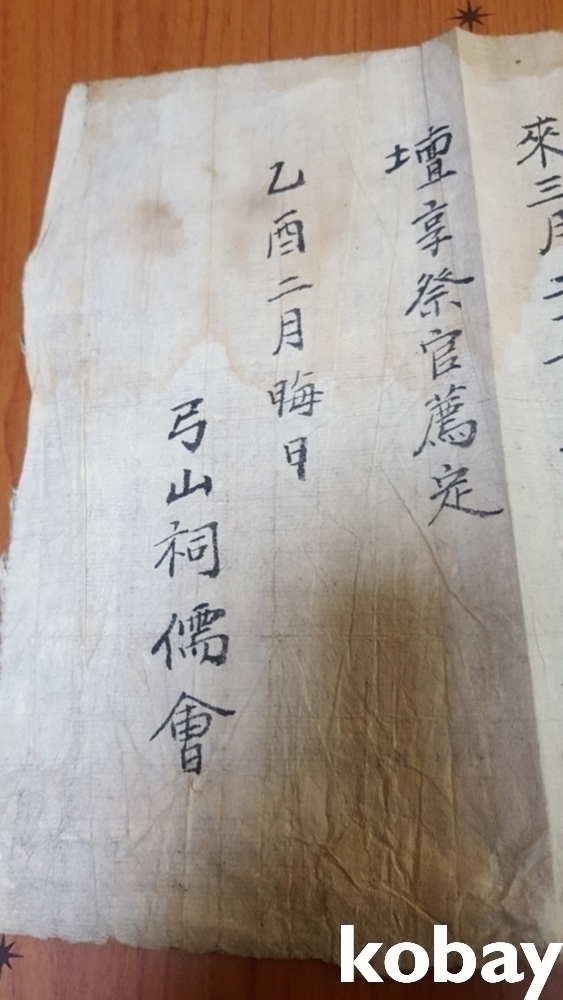 來三月二十
壇享祭官薦定
乙酉二月晦日
弓山祠儒會
kobay